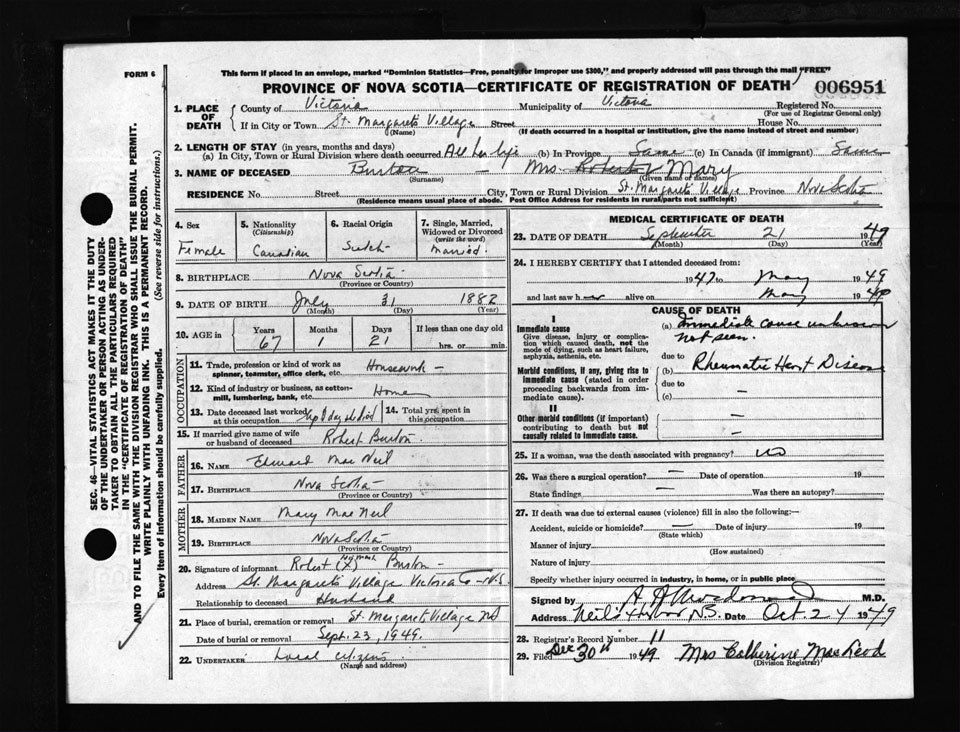 FORM 6
This form if placed in an envelope, marked "Dominion Statistics—Free, penalty for improper use $300," and properly addressed will pass through the mail "FREE"
PROVINCE OF NOVA SCOTIA—CERTIFICATE OF REGISTRATION OF DEATH
006951
1. PLACE OF DEATH
County of Victoria Municipality of Victoria Registered No.
(For use of Registrar General only)
If in City or Town St. Margarets Village Street House No.
(Name) (If death occurred in a hospital or institution, give the name instead of street and number)
2. LENGTH OF STAY (in years, months and days)
(a) In City, Town or Rural Division where death occurred All her life (b) In Province Same (c) In Canada (if immigrant) Same
3. NAME OF DECEASED Burton - Mrs Robert Mary
(Surname) (Given name or names)
RESIDENCE No. Street City, Town or Rural Division St. Margarets Village Province Nova Scotia
(Residence means usual place of abode. Post Office Address for residents in rural parts not sufficient)
4. Sex
Female
5. Nationality
(Citizenship)
Canadian
6. Racial Origin
7. Single, Married, Widowed or Divorced
(write the word)
Married.
8. BIRTHPLACE Nova Scotia
(Province or Country)
9. DATE OF BIRTH July 31 1882
(Month) (Day) (Year)
10. AGE in
Years Months Days If less than one day old
67 1 21 hrs. or min.
OCCUPATION
11. Trade, profession or kind of work as spinner, teamster, office clerk, etc. Housework -
12. Kind of industry or business, as cotton-mill, lumbering, bank, etc. Home
13. Date deceased last worked at this occupation
14. Total yrs. spent in this occupation
15. If married give name of wife or husband of deceased Robert Burton.
FATHER
16. NAME Edward Mac Neil
17. BIRTHPLACE Nova Scotia
(Province or Country)
MOTHER
18. MAIDEN NAME Mary Mac Neil
19. BIRTHPLACE Nova Scotia
(Province or Country)
20. Signature of informant Robert (X) Burton -
his mark
Address St. Margarets Village Victoria Co - N.S.
Relationship to deceased Husband
21. Place of burial, cremation or removal St. Margaret Village NS
Date of burial or removal Sept. 23, 1949.
22. UNDERTAKER Local citizens
(Name and address)
MEDICAL CERTIFICATE OF DEATH
23. DATE OF DEATH September 21 1949
(Month) (Day) (Year)
24. I HEREBY CERTIFY that I attended deceased from:
1947 to May 1949
and last saw her alive on May 1949
CAUSE OF DEATH
I
Immediate cause
Give disease, injury or complication which caused death, not the mode of dying, such as heart failure, asphyxia, asthenia, etc.
(a) Immediate cause unknown
not seen.
due to
Morbid conditions, if any, giving rise to immediate cause (stated in order proceeding backwards from immediate cause).
(b) Rheumatic Heart Disease
due to
(c) -
II
Other morbid conditions (if important) contributing to death but not causally related to immediate cause.
-
-
25. If a woman, was the death associated with pregnancy? no
26. Was there a surgical operation? - Date of operation 19
State findings - Was there an autopsy?
27. If death was due to external causes (violence) fill in also the following:—
Accident, suicide or homicide? - Date of injury 19
(State which)
Manner of injury
(How sustained)
Nature of injury
Specify whether injury occurred in industry, in home, or in public place
Signed by M.D.
Address Neil's Harbor N.S. Date Oct. 24 1949
28. Registrar's Record Number 11
29. Filed Dec 30th 1949 Mrs Catherine MacLeod
(Division Registrar)
SEC. 46—VITAL STATISTICS ACT MAKES IT THE DUTY
OF THE UNDERTAKER OR PERSON ACTING AS UNDER-
TAKER TO OBTAIN ALL THE PARTICULARS REQUIRED
IN THE "CERTIFICATE OF REGISTRATION OF DEATH"
AND TO FILE THE SAME WITH THE DIVISION REGISTRAR WHO SHALL ISSUE THE BURIAL PERMIT.
WRITE PLAINLY WITH UNFADING INK. THIS IS A PERMANENT RECORD.
Every item of information should be carefully supplied. (See reverse side for instructions.)